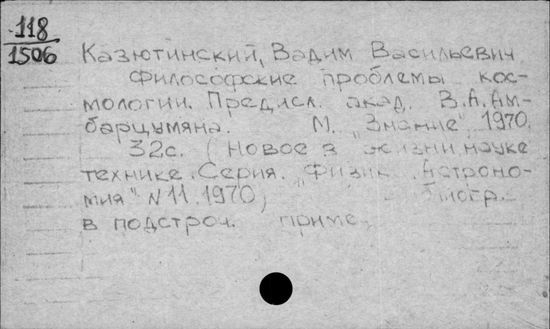 118
1506
Казютинский, Вадим Васильевич
Философские проблемы кос-
мологии. Предисл. акад. В.А.Ам-
барцумяна. М. „Знание", 1970.
32с. (Новое в жизни, науке
технике. Серия. „Физик Астроно-
мия" N11. 1970)
в подстроч. приме